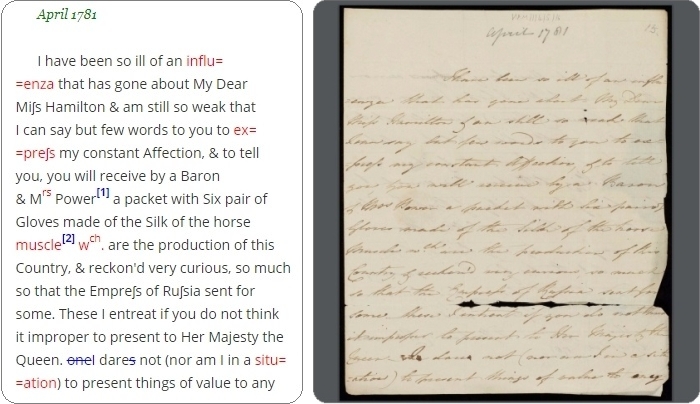 April 1781
I have been so ill of an influ=
=enza that has gone about My Dear
Miſs Hamilton & am still so weak that
I can say but few words to you to ex=
=preſs my constant Affection, & to tell
you, you will receive by a Baron
& Mrs Power[1] a packet with Six pair of
Gloves made of the Silk of the horse
muscle[2] wch. are the production of this
Country, & reckon'd very curious, so much
so that the Empreſs of Ruſsia sent for
some. These I entreat if you do not think
it improper to present to Her Majesty the
Queen. oneI dares not (nor am I in a situ=
=ation) to present things of value to any
April 1781
I have been so ill of an influ
enza that has gone about My Dear
Miſs Hamilton & am still so weak that
I can say but few words to you to ex
preſs my constant Affection, & to tell
you you will receive by a Baron
& Mrs Power a packet with Six pair of
Gloves made of the Silk of the horse
muscle wch are the production of this
Country, & reckon'd very curious, so much
so that the Empreſs of Ruſsia sent for
some These I entreat if you do not think
it improper to present to Her Majesty the
Queen I dare not (nor am I in a situ
ation) to present things of value to any